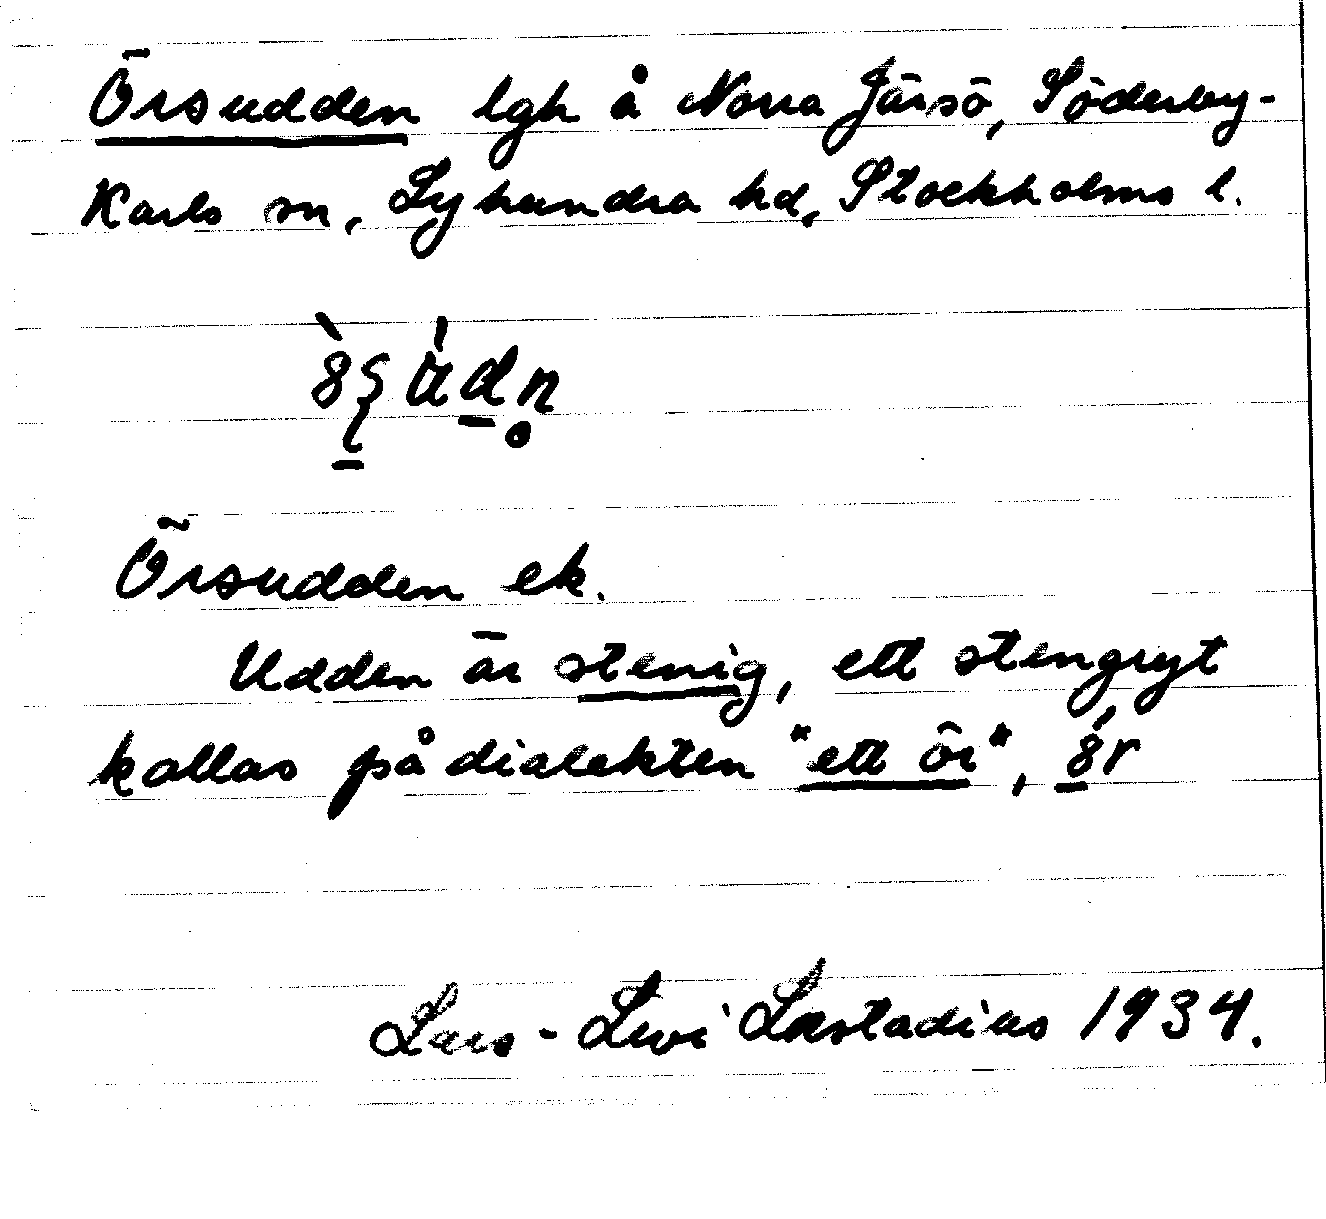 Örsudden lgh å Norra Järsö, Söderby-
Karls sn, Lyhundra hd, Stockholms l.
Örsudden ek.
Udden är stenig, ett stengryt
kallas på dialekten "ett ör",
Lars-Levi Læstadius 1934.